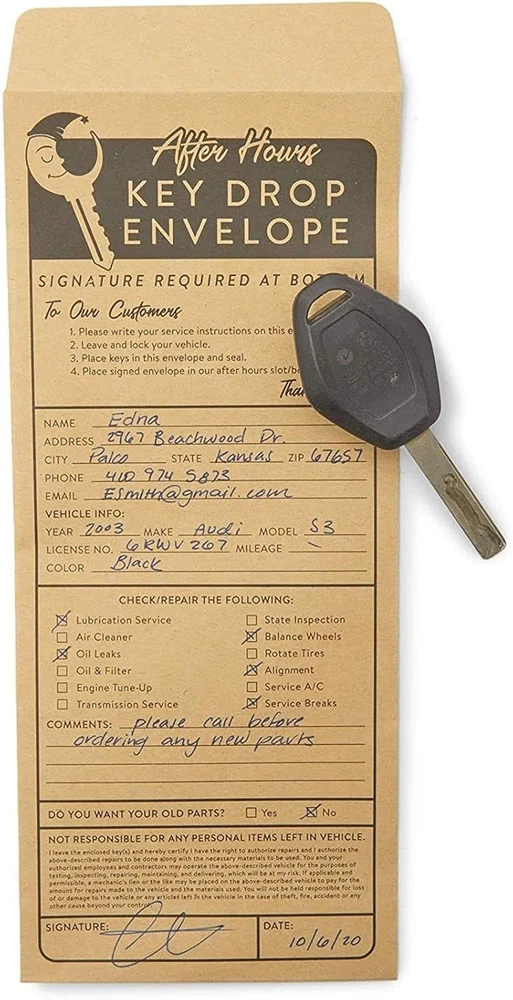 After Hours
KEY DROP
ENVELOPE
SIGNATURE REQUIRED AT
To Our Customers
1. Please write your service instructions on this
2. Leave and lock your vehicle.
3. Place keys in this envelope and seal.
4. Place signed envelope in our after hours
NAME Edna
ADDRESS 2967 Beachwood Dr.
CITY Palco STATE Kansas ZIP 67657
PHONE 410 974 5873
EMAIL ESmith@gmail.com
VEHICLE INFO:
YEAR 2003 MAKE Audi MODEL S3
LICENSE NO. 6RWV267 MILEAGE
COLOR Black
CHECK/REPAIR THE FOLLOWING:
Lubrication Service State Inspection
Air Cleaner Balance Wheels
Oil Leaks Rotate Tires
Oil & Filter Alignment
Engine Tune-Up Service A/C
Transmission Service Service Breaks
COMMENTS: please call before
ordering any new parts
DO YOU WANT YOUR OLD PARTS? Yes No
NOT RESPONSIBLE FOR ANY PERSONAL ITEMS LEFT IN VEHICLE.
I leave the enclosed key(s) and hereby certify I have the right to authorize repairs and I authorize the
above-described repairs to be done along with the necessary materials to be used. You and your
authorized employees and contractors may operate the above-described vehicle for the purposes of
testing, inspecting, repairing, maintaining, and delivering, which will be at my risk. If applicable and
permissible, a mechanic's lien or the like may be placed on the above-described vehicle to pay for the
amount for repairs made to the vehicle and the materials used. You will not be held responsible for loss
of or damage to the vehicle or any articles left in the vehicle in the case of theft, fire, accident or any
other cause beyond your control.
SIGNATURE: DATE:
10/6/20